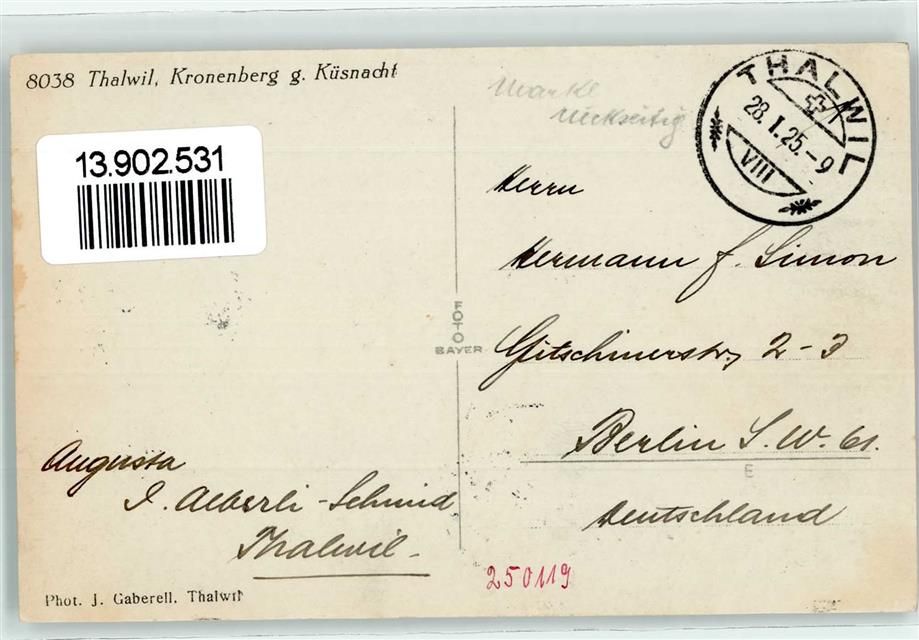 8038 Thalwil, Kronenberg g. Küsnacht
Marke
rückseitig
THALWIL
28. I. 25. - 9
VIII
13.902.531
Herrn
Hermann F. Simon
Gitschinerstr. 2 - 3
Berlin S. W. 61.
Deutschland
FOTO
BAYER
E
Augusta
J. Aeberli-Schmid
Thalwil.
250119
Phot. J. Gaberell, Thalwil